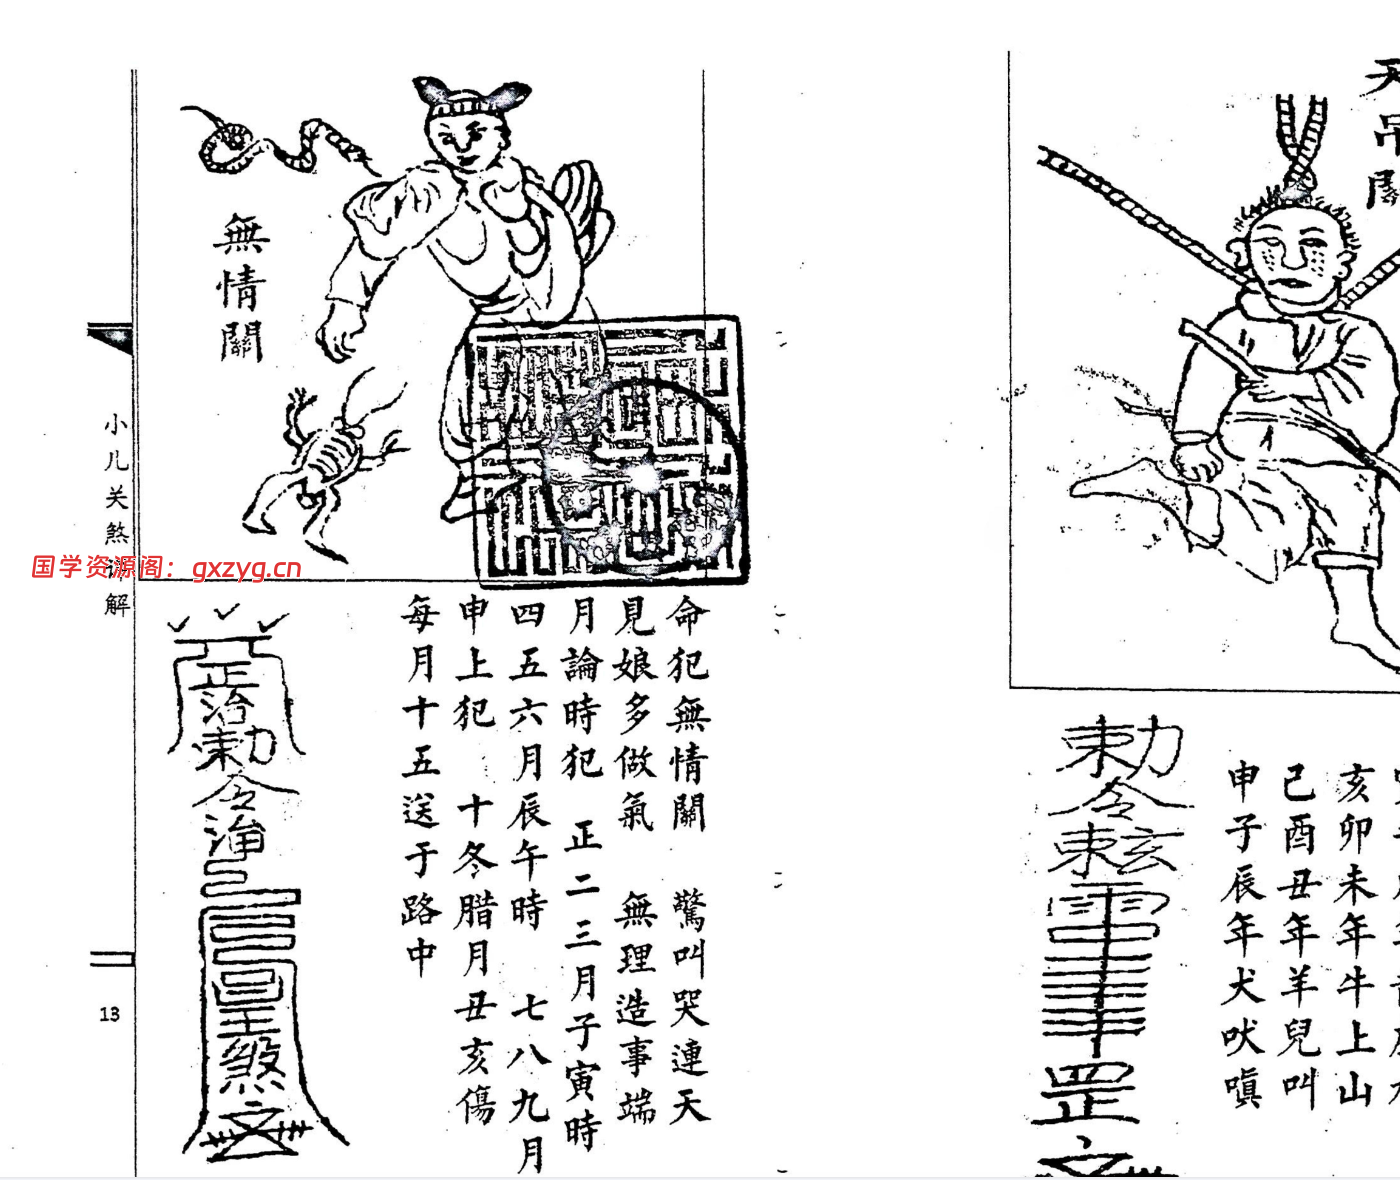 無情關
命犯無情關 驚叫哭連天
見娘多做氣 無理造事端
月論時犯 正二三月子寅時
四五六月辰午時 七八九月
申上犯 十冬腊月丑亥傷
每月十五送于路中
正治敕令
煞
小儿关煞讲解
13
国学资源阁：gxzyg.cn
天吊關
亥卯未年牛上山
己酉丑年羊兒叫
申子辰年犬吠嗔
敕令
罡